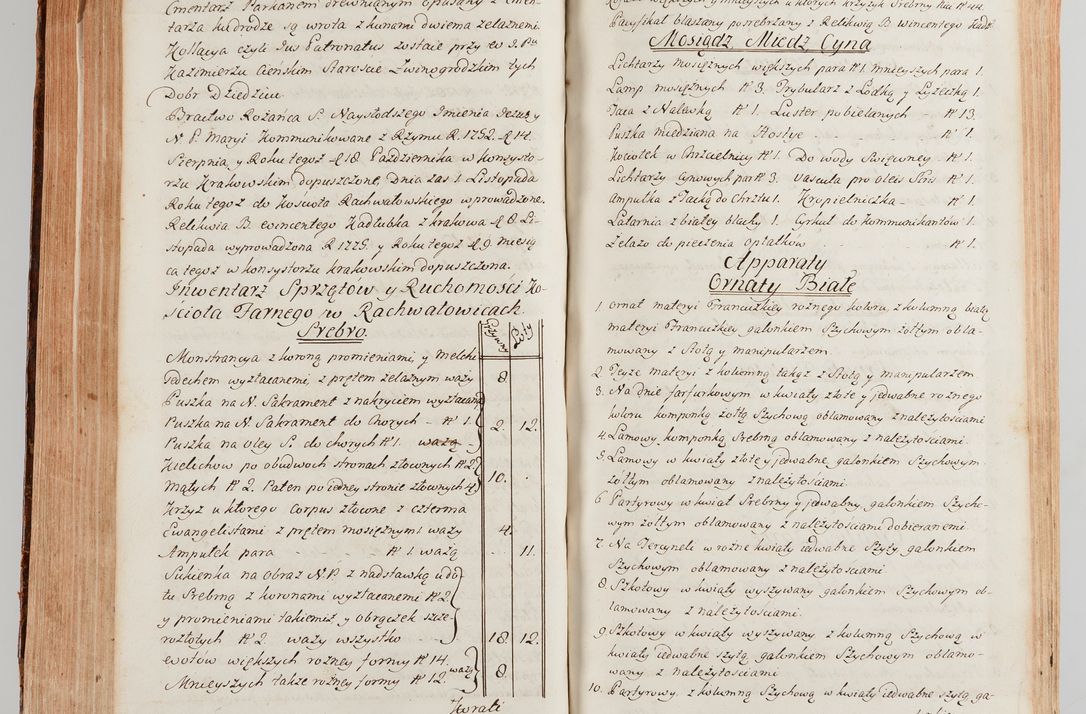 Cmentarz Parkanem drewnianym opasany z Cmen-
tarza ku drodze są wrota z kunami dwiema żelaznemi
Kollacya czyli Jus Patronatus zostaie przy
Kazimierzu Cieńskim Staroście Zwinogrodzkim tych
Dobr Dziedzicu.
Bractwo Rożańca S. Naysłodszego Imienia Jezus y
N. P. Maryi Kommunikowane z Rzymu R. 1752. d. 14.
Sierpnia, y Roku tegoż d. 18. Pazdziernika w konsysto-
rzu Krakowskim dopuszczone, Dnia zaś 1. Listopada
Roku tegoż do Kościoła Rachwałowskiego wprowadzone.
Relikwia B. Wincentego Kadłubka z krakowa d. 8. Li-
stopada wyprowadzona R. 1775. y Roku tegoż d. 9. miesią
ca tegoż w konsystorzu krakowskim dopuszczona.
Inwentarz Sprzętow y Ruchomości Ko-
ścioła Farnego w Rachwałowicach.
Srebro.
Grzywny Łoty
Monstrancya z koroną promieniami, y Melchi
sedechem wyzłacanemi, z prętem żelaznym waży 8.
Puszka na N. Sakrament z nakryciem wyzłacana
Puszka na N. Sakrament do Chorych - Nº 1. 2. 12.
Puszka na oley S. do chorych Nº 1. ważą
Kielichow po obudwoch stronach złocnych Nº 2.
Małych Nº 2. Paten po iedney stronie złocnych 4. 10.
Krzyż u ktorego Corpus złocone z czterma
Ewangelistami z prętem mosiężnym waży 4.
Ampułek para Nº 1. ważą 11.
Sukienka na obraz N. P. z nadstawką u do-
łu Srebrną z koronami wyzłacanemi Nº 2.
y promieniami takiemiż y obrączek szcze-
rozłotych Nº 2. waży wszystko 18. 12.
Wotow większych rożney formy Nº 14.
Mnieyszych także rożney formy Nº 12. ważą 8.
Korali
Pacyfikał blaszany posrebrzany z Relikwią B. wincentego Kadł.
Mosiądz Miedz Cyna
Lichtarzy mosiężnych większych para Nº 1. mnieyszych para 1.
Lamp mosiężnych Nº 3. Trybularz z Łodką y Łyżeczką 1.
Taca z Nalewką Nº 1. Luster pobielanych - Nº 13.
Puszka miedziana na Hostye - Nº 1.
Kociołek w Chrzcielnicy Nº 1. Do wody Święconey - Nº 1.
Lichtarzy cynowych par Nº 3. Vascula pro oleis Scris Nº 1.
Ampułka z Tacką do Chrztu 1. Kropielniczka - Nº 1.
Latarnia z białey blachy 1. Cyrkuł do kommunikantow 1.
Żelazo do pieczenia opłatkow Nº 1.
Apparaty
Ornaty Białe
1. Ornat materyi Francuzkiey rożnego koloru z kolumną białą
materyi Francuzkiey galonkiem Szychowym żołtym obla-
mowany z Stołą y manipularzem
2. Teyże materyi z kolumną takąż z Stołą y manipularzem
3. Na dnie farfurkowym w kwiaty złote y jedwabne rożnego
koloru komponką żołtą Szychową oblamowany z należytościami
4. Lamowy komponką Srebrną oblamowany z należytościami.
5. Lamowy w kwiaty złote y jedwabne, galonkiem Szychowym
żołtym oblamowany z należytościami.
6. Partyrowy w kwiat Srebrny y jedwabny, galonkiem Szycho-
wym żołtym oblamowany z należytościami dobieranemi
7. Na Tercyneli w rożne kwiaty iedwabne Szyty galonkiem
Szychowym oblamowany z należytościami
8. Szkotowy w kwiaty wyszywany galonkiem Szychowym ob-
lamowany z należytościami.
9. Szkotowy w kwiaty wyszywany z kolumną Szychową w
kwiaty iedwabne szytą galonkiem Szychowym oblamo-
wany z należytościami
10. Partyrowy z kolumną Szychową w kwiaty iedwabne szytą, ga-